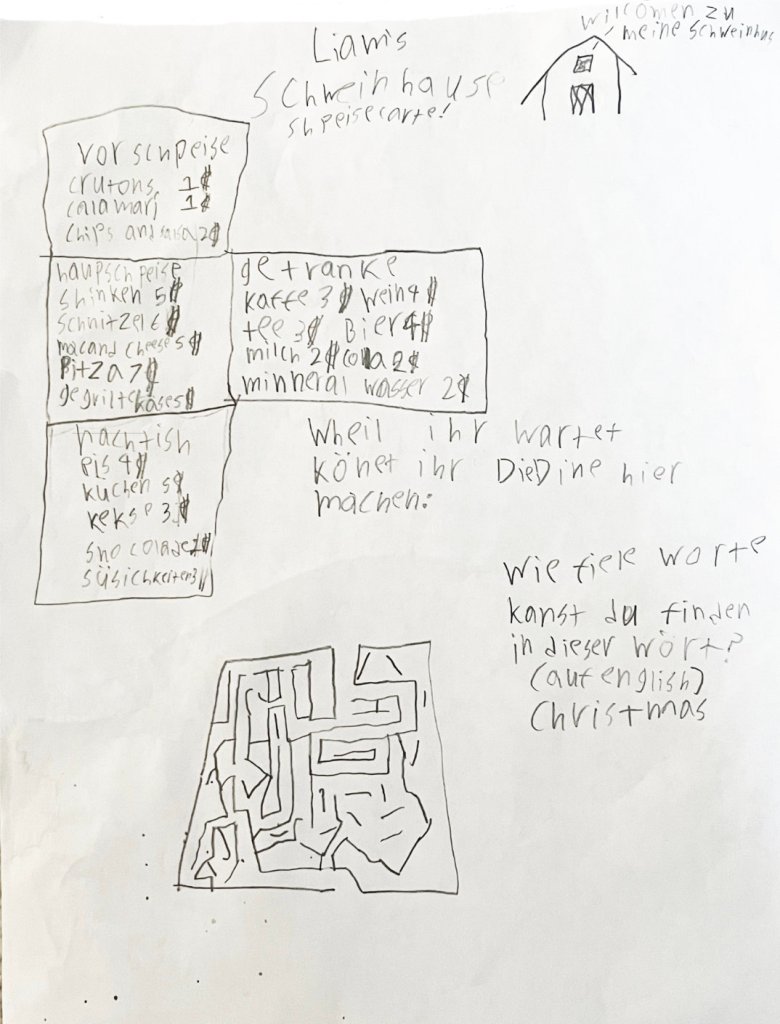 wilcomen zu
meine schweinhus
Liam's
Schweinhause
shpeisecarte!
vor schpeise
crutons 1$
calamari 1$
chips and salsa 2$
haupschpeise
shinken 5$
schnitzel 6$
mac and cheese 5$
Pitza 7$
gegrilte käse 5$
getranke
kaffe 3$ wein 4$
tee 3$ Bier 4$
milch 2$ cola 2$
minneral wasser 2$
nachtish
eis 4$
küchen 5$
kekse 3$
sno colade 1$
süsichkeiten 3$
Wheil ihr wartet
könet ihr Die Dine hier
machen:
Wie fiele worte
kanst du finden
in dieser wört?
(auf english)
Christmas